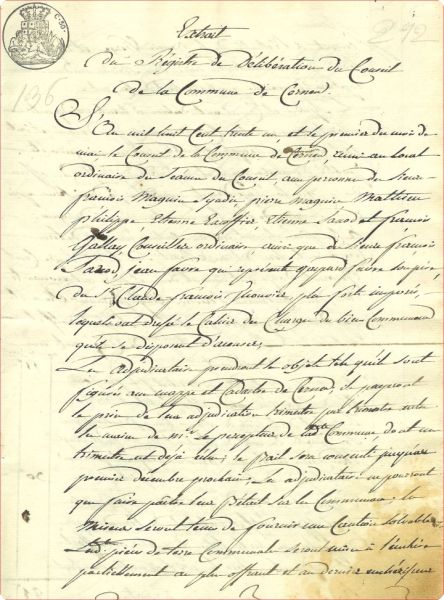 Extrait
292
C. 50.
136
du Régistre de Délibération du Conseil
de la Commune de Cornou.
du mil huit Cent trente un et le premier du mois de
mai le Conseil de la Commune de réuni au local
ordinaire du Seance du Conseil aux personne de Sieur
françois Maquin pierre Maquin Mathieu
philippe Etienne Etienne Savod et françois
Gallay, Conseiller ordinaire ainsi que de Sieur françois
jean favre qui représente gaspard favre son père
du Sr Claude françois plus forts imposés,
laquels ont dressé le Cahier de Charge du bien Communaux
qu'il se disposent d'amauser,
Les adjudicataire prendront les objets tels qu'ils sont
figurés au mappe et Cadastre de il payeront
le prix de leur adjudication trimestre par trimestre entre
les mains de Mr. le percepteur de la dite Commune, dont un
trimestre est déjà echu; le bail sera jusquau
premier décembre prochain. Les adjudicataire ne pourront
que faire paitre leur bétail sur les Communaux; les
Miseurs seront tenu de fournir une Caution Solvable
Lesd. pièces de terre Communale seront mise à l'enchère
partiellement au plus offrant et au dernier enchérisseur